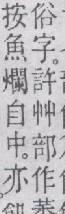 俗字。許艸部作萎
按魚爛自中。亦